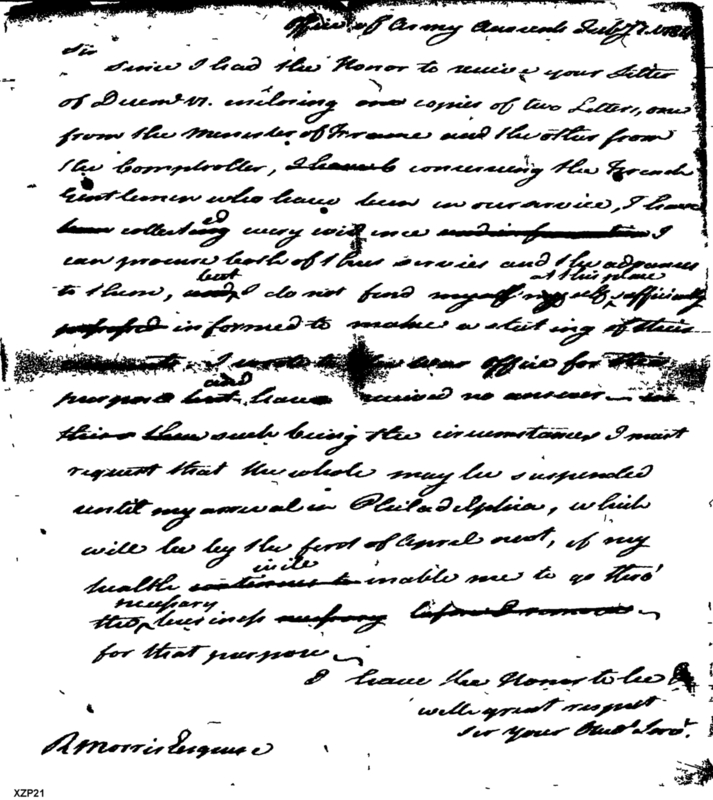 Office of Army Accounts July
Sir
Since I had the Honor to receive your Letter
of Decemr. inclosing copies of two Letters, one
from the Minister of France and the other from
the Comptroller, I have concerning the French
Gentlemen who have been in our service, I have
been collecting ed every evidence and information I
can procure both of their services and the advances
to them, and but I do not find myself at this place sufficiently
prepared informed to make a stating of their
accounts. I wrote to the War Office for this
purpose but and have received no answer
such being the circumstances I must
request that the whole may be suspended
until my arrival in Philadelphia, which
will be by the first of April next, if my
health continues to will inable me to go thro'
the necessary business necessary before I remove
for that purpose
I have the Honor to be
with great respect
Sir your Obedt. Servt.
R Morris Esquire
XZP21